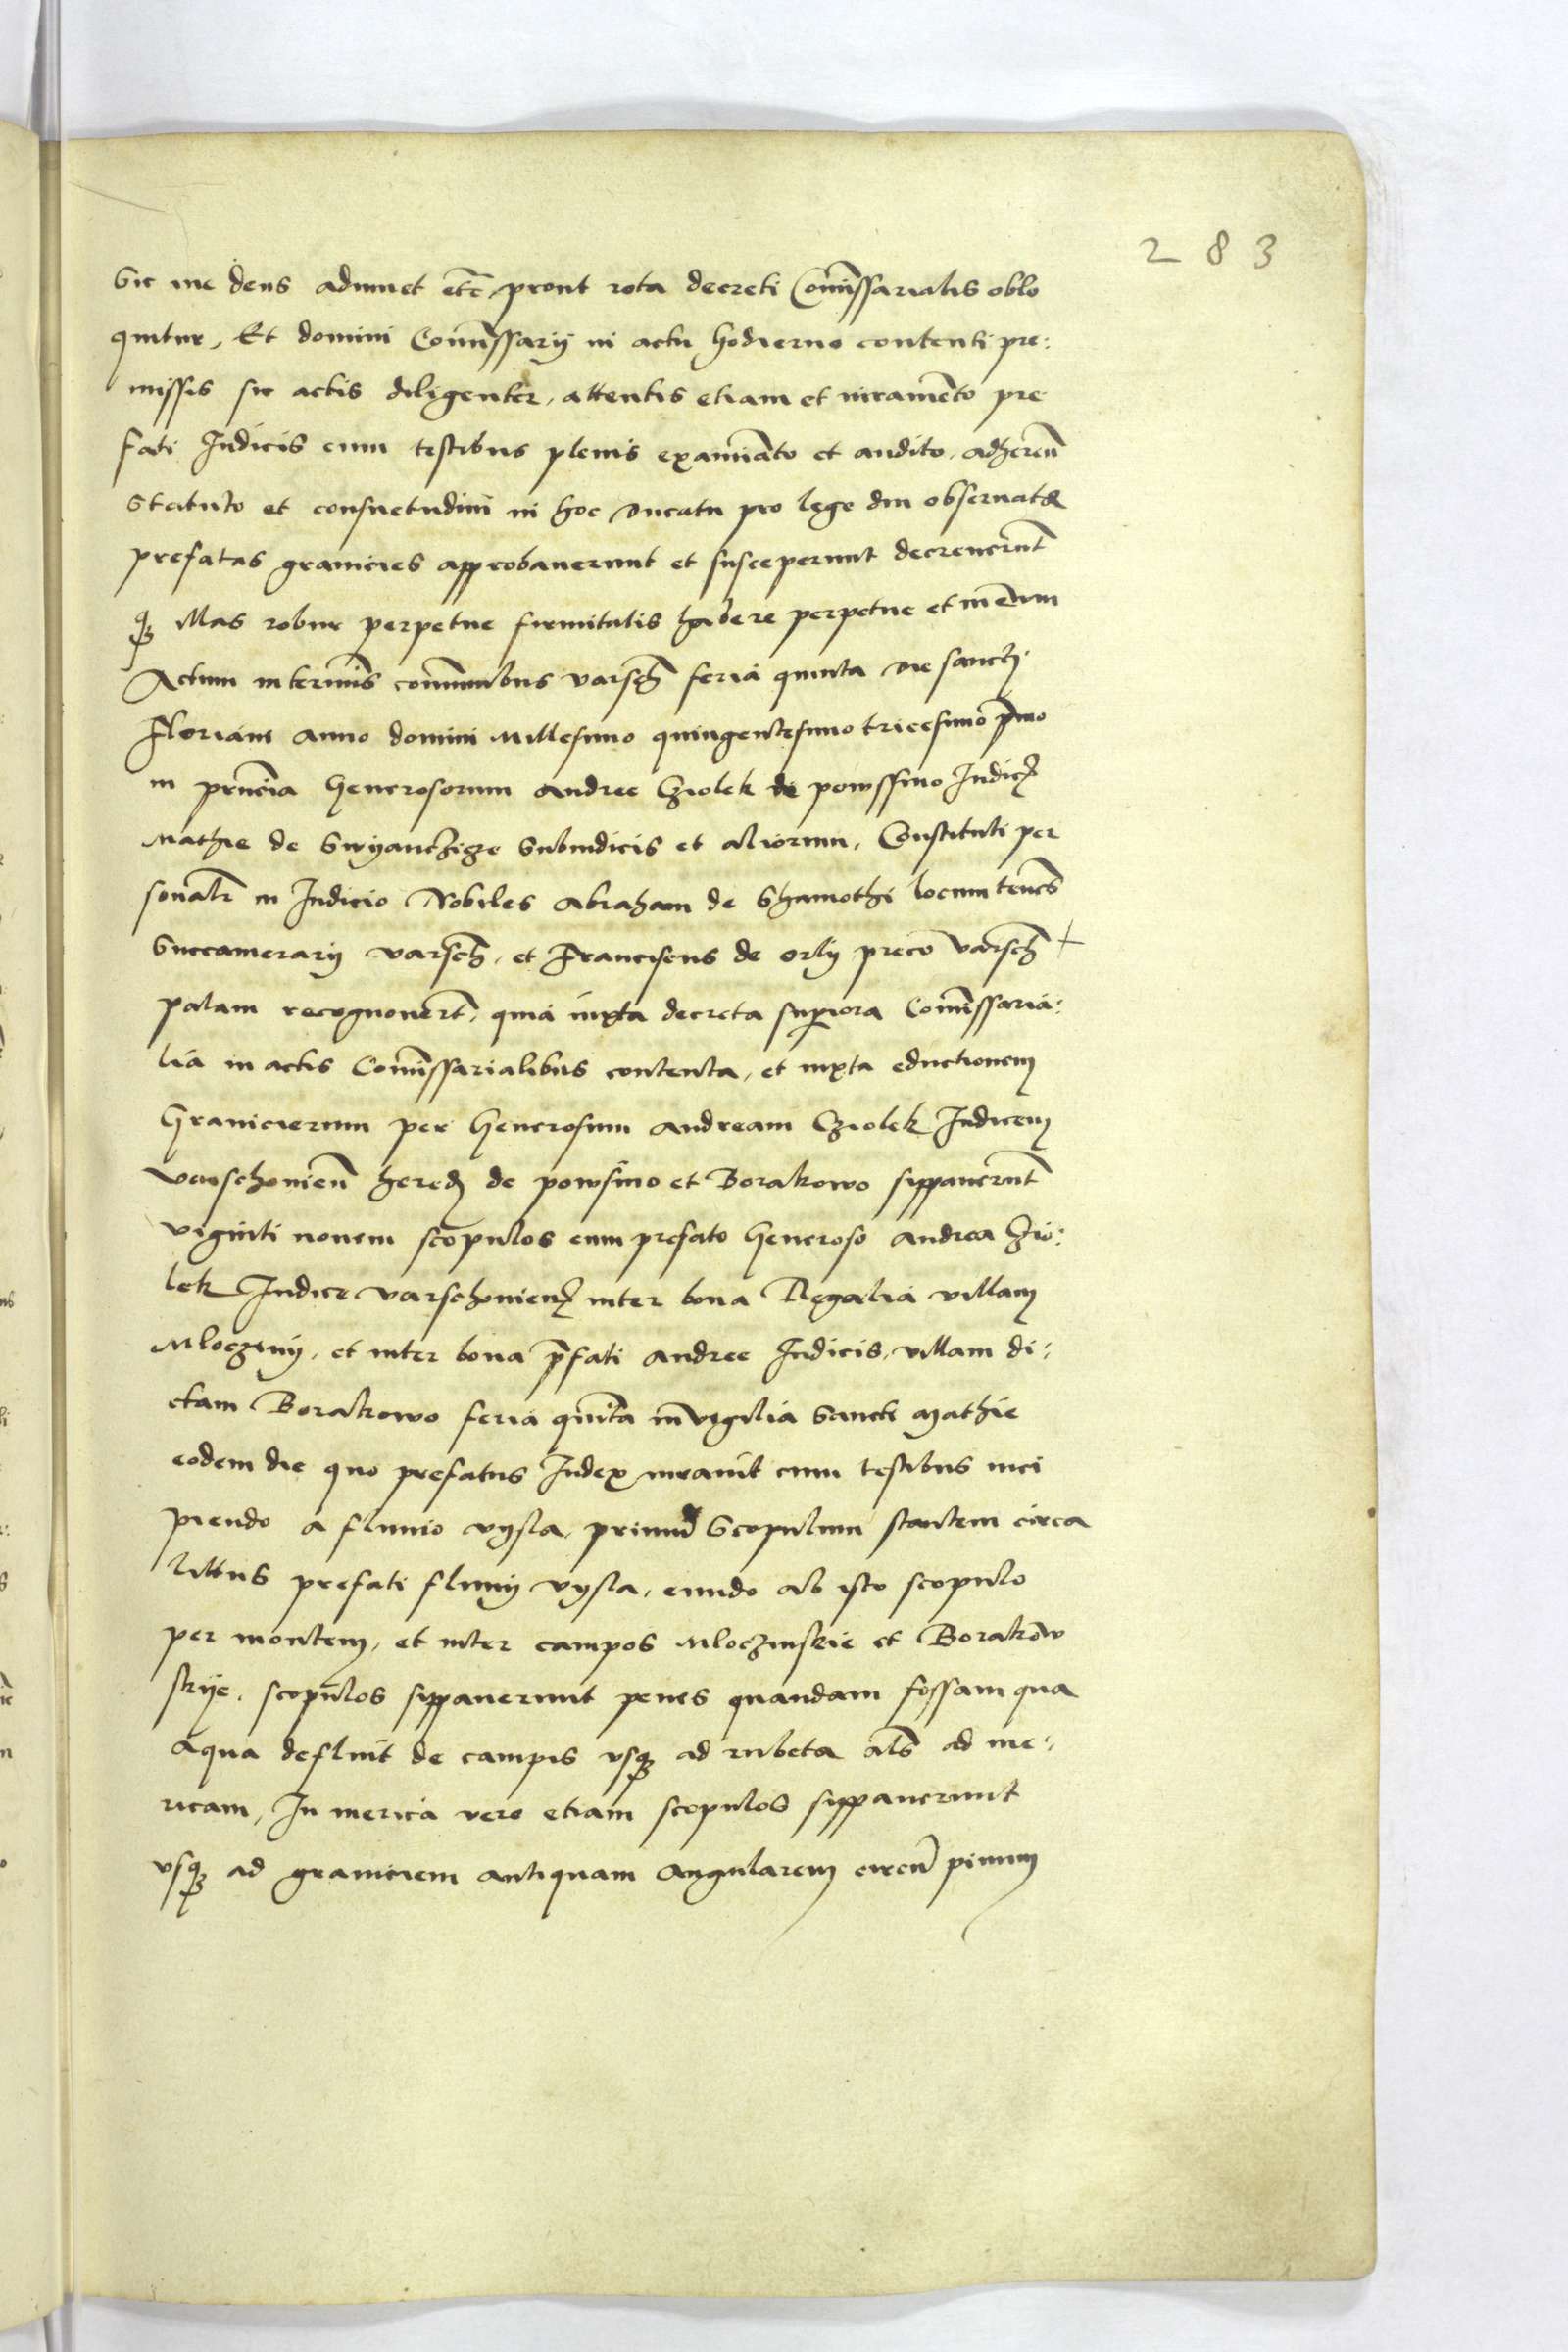 283
Sic me deus adiuuet etc̄ prout rota decreti Com̄issarialis oblo
quitur, Et domini Com̄issarij in actu hodierno contenti pre:
missis sic actis diligenter, attentis etiam et iuramēto pre
fati Iudicis cum testibus plenis examiāto et audito, adheren̄
Statuto et consuetudini in hoc ducatu pro lege diu obseruatę
prefatas granicies approbauerunt et susceperunt decreuerūt
qȝ illas robur perpetue firmitatis habere perpetue et in eūum
Actum in termīs com̄unibus varsch̄ feria quinta die sancti
Floriani anno domini Millesimo quingentesimo tricesimo pīmo
in pn̄cia Generosorum Andree Cziolek de powssino Iudicȝ
Mathie de Swyanczicze Subiudicis et aliorum, Constituti per
sonalr̄ in Iudicio Nobiles Abraham de Shamothi locum tenēs
Succamerarij varsch̄, et Franciscus de orly preco varsch̄ +
palam recognouert̄, quia iuxta decreta supiora Com̄issaria:
lia in actis Com̄issarialibus contenta, et iuxta eductionem
Granicierum per Generosum Andream Cziolek Iudicem
varschouien̄ hered̄ de powsino et Borakowo sippauerūt
viginti nouem scopulos cum prefato Generoso Andrea Czio:
lek Iudice varschouienȝ inter bona Regalia villam
Mloczyny, et inter bona p̄fati Andree Iudicis, villam di:
ctam Borakowo feria quīta in vigilia Sancti Mathie
eodem die quo prefatus Iudex iurauit cum testibus inci
piendo a fluuio vysla, primū Scopulum stantem circa
littus prefati fluuij vysla, eundo ab isto scopulo
per montem, et inter campos Mloczinskie et Borakow
skije, scopulos sippauerunt penes quandam fossam qua
aqua defluit de campis vsqȝ ad rubeta als̄ ad me:
ricam, In merica vero etiam scopulos sippauerunt
vsqȝ ad graniciem antiquam angularem circū pinum